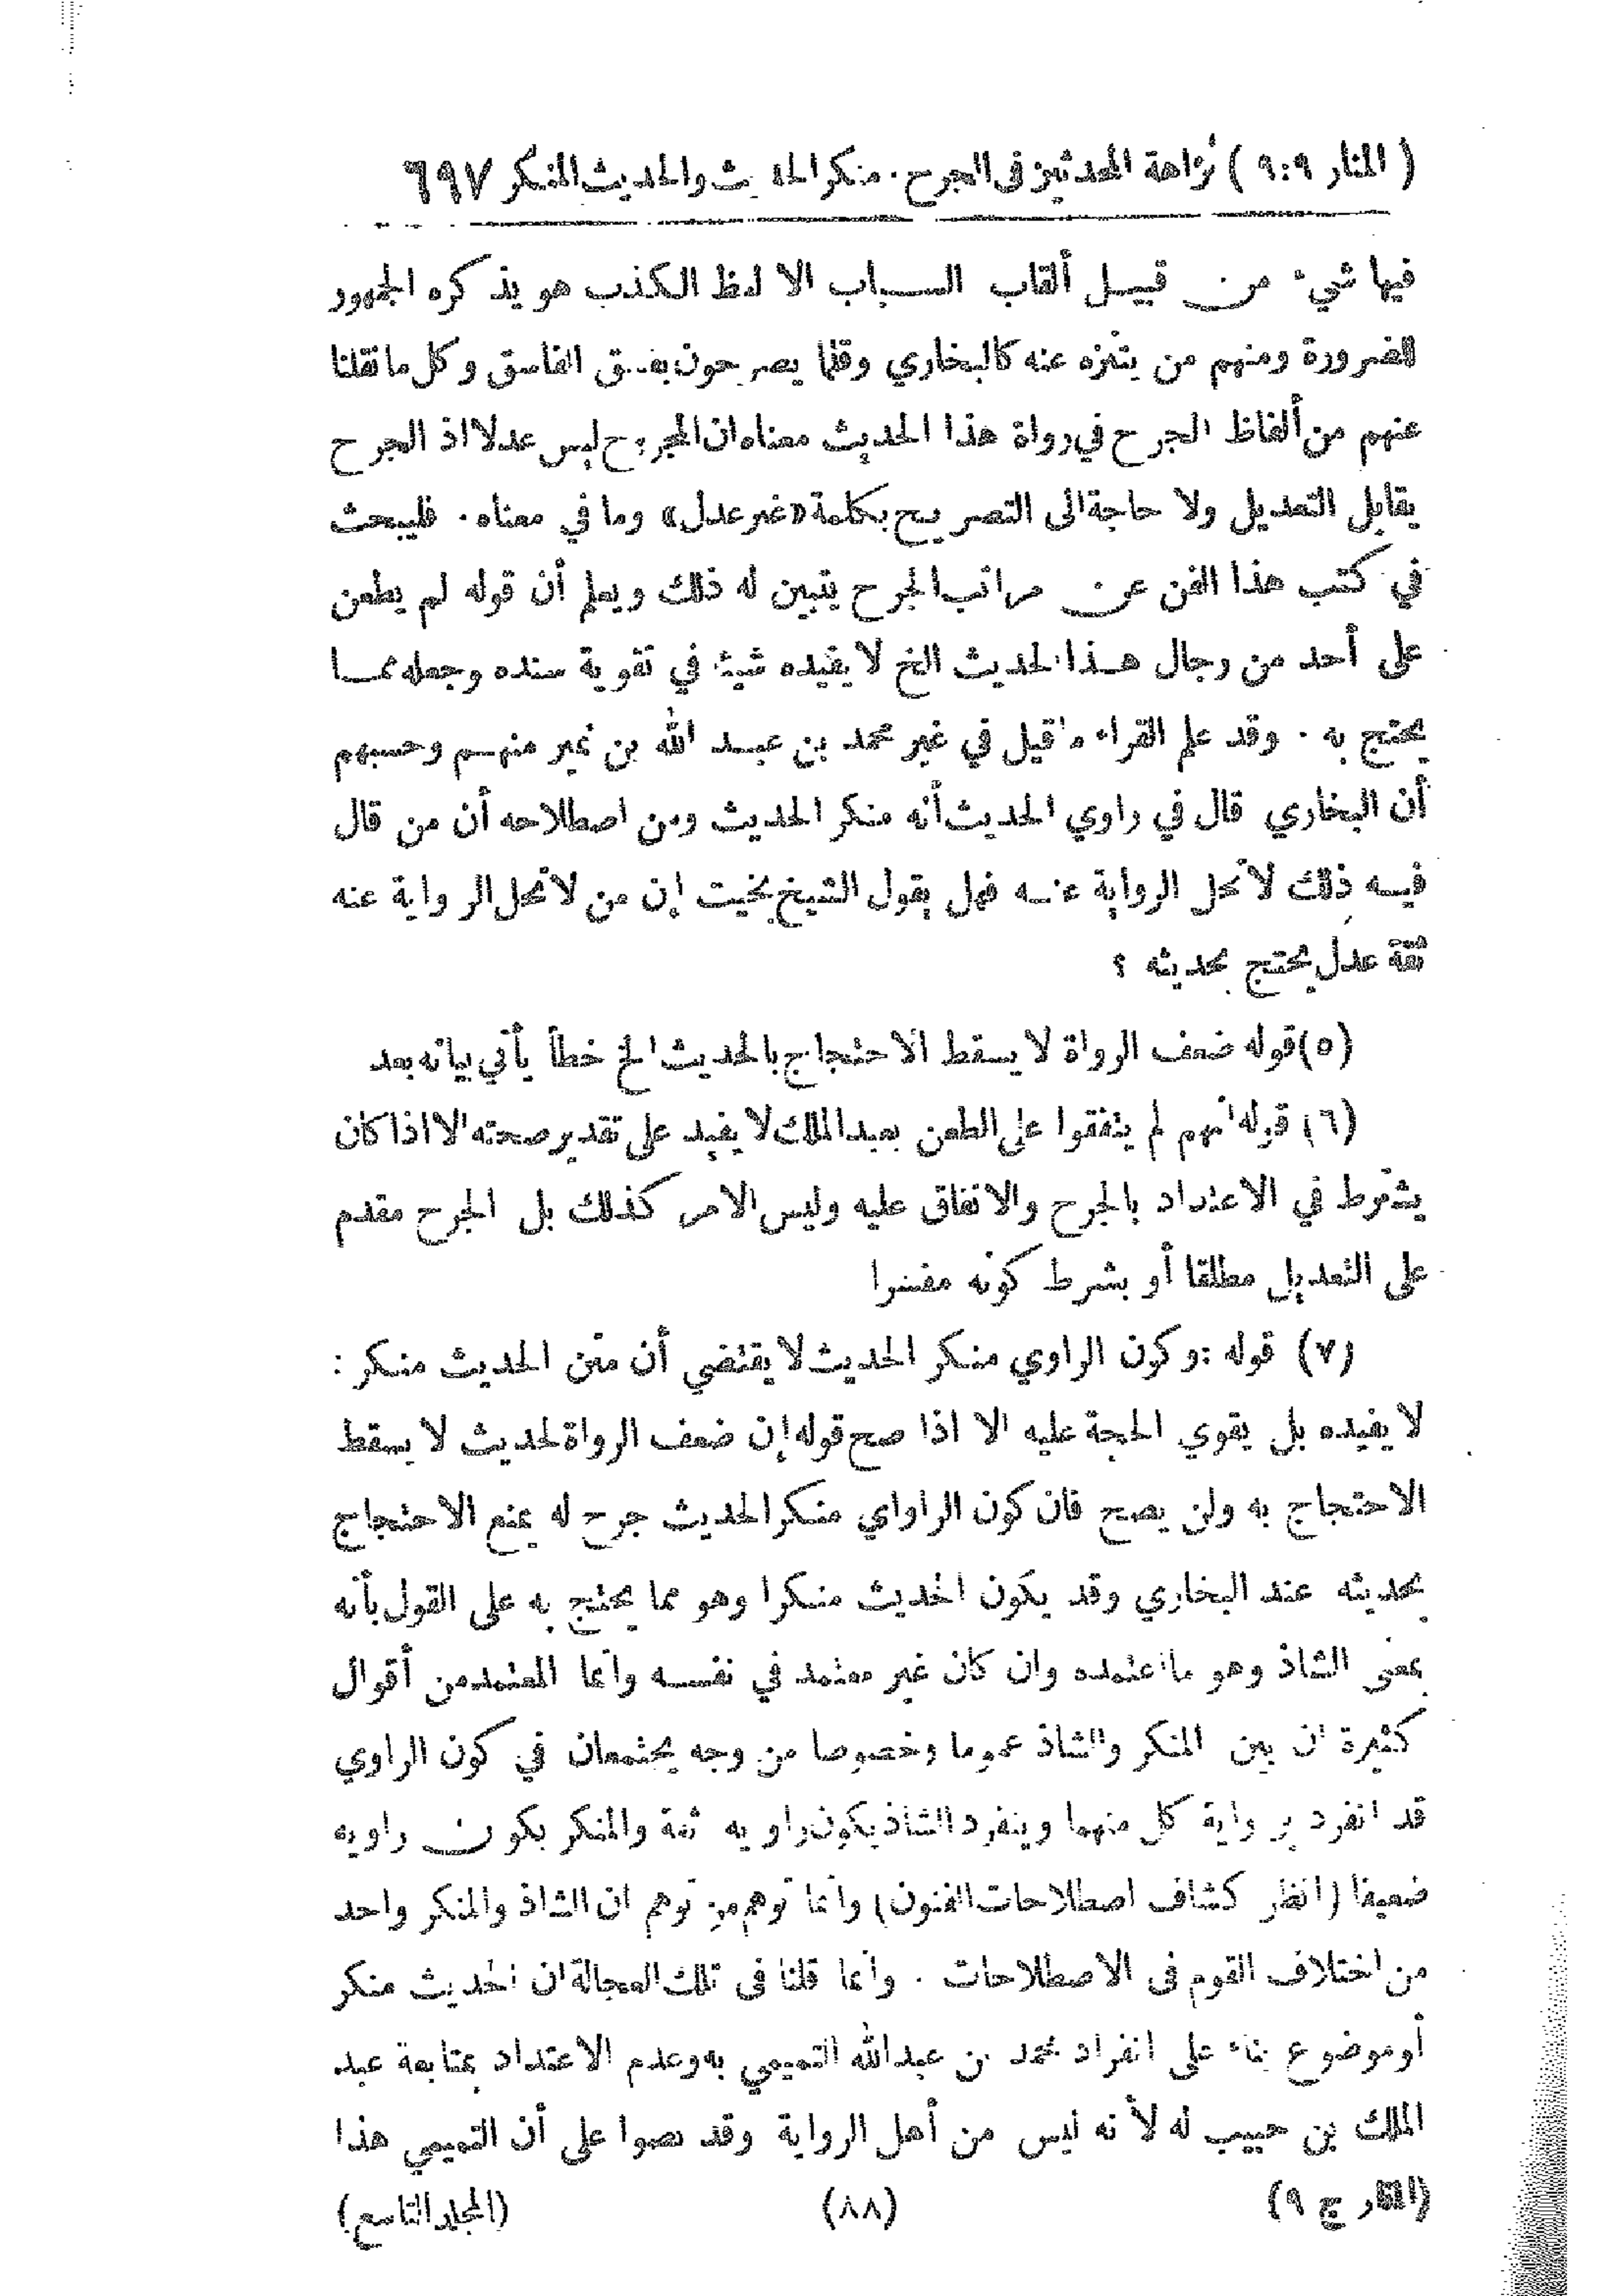 ( المنار ٩:٩ ) نزاهة المحدثين فى الجرح . منكر الحديث والحديث المنكر ٦٩٧
فيها شيء من قبيل ألقاب السباب الا لفظ الكذب هو يذكره الجمهور
للضرورة ومنهم من يتنزه عنه كالبخاري وقلما يصرحون بفسق الفاسق وكل ما نقلنا
عنهم من ألفاظ الجرح في رواة هذا الحديث معناه ان المجروح ليس عدلا اذ الجرح
يقابل التعديل ولا حاجة الى التصريح بكلمة «غير عدل» وما في معناه . فليبحث
في كتب هذا الفن عن مراتب الجرح يتبين له ذلك ويعلم أن قوله لم يطعن
على أحد من رجال هذا الحديث الخ لا يفيده شيئا في تقوية سنده وجعله مما
يحتج به . وقد علم القراء ما قيل في غير محمد بن عبد الله بن نمير منهم وحسبهم
أن البخاري قال في راوي الحديث أنه منكر الحديث ومن اصطلاحه أن من قال
فيه ذلك لا تحل الرواية عنه فهل يقول الشيخ بخيت إن من لا تحل الرواية عنه
ثقة عدل يحتج بحديثه ؟
(٥) قوله ضعف الرواة لا يسقط الاحتجاج بالحديث الخ خطأ يأتي بيانه بعد
(٦) قوله انهم لم يتفقوا على الطعن بعبد الملك لا يفيد على تقدير صحته الا اذا كان
يشترط في الاعتداد بالجرح والاتفاق عليه وليس الامر كذلك بل الجرح مقدم
على التعديل مطلقا أو بشرط كونه مفسرا
(٧) قوله : وكون الراوي منكر الحديث لا يقتضي أن متن الحديث منكر :
لا يفيده بل يقوي الحجة عليه الا اذا صح قوله إن ضعف الرواة لحديث لا يسقط
الاحتجاج به ولن يصح فان كون الراواي منكر الحديث جرح له يمنع الاحتجاج
بحديثه عند البخاري وقد يكون الحديث منكرا وهو مما يحتج به على القول بأنه
بمعنى الشاذ وهو ما اعتمده وان كان غير معتمد في نفسه وانما المعتمد من أقوال
كثيرة ان بين المنكر والشاذ عموما وخصوصا من وجه يجتمعان في كون الراوي
قد انفرد برواية كل منهما وينفرد الشاذ بكون راويه ثقة والمنكر بكون راويه
ضعيفا (انظر كشاف اصطلاحات الفنون) وانما توهم من توهم ان الشاذ والمنكر واحد
من اختلاف القوم فى الاصطلاحات . وانما قلنا فى تلك العجالة ان الحديث منكر
أو موضوع بناء على انفراد محمد بن عبد الله التميمي به وعدم الاعتداد بمتابعة عبد
الملك بن حبيب له لأنه ليس من أهل الرواية وقد نصوا على أن التميمي هذا
(المنار ج ٩) (٨٨) (المجلد التاسع)